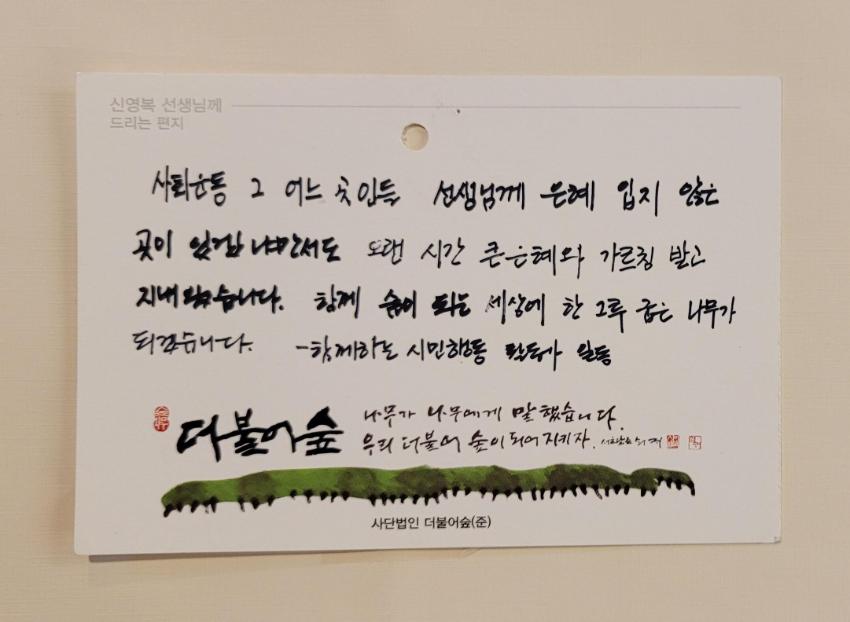 신영복 선생님께
드리는 편지
사회운동 그 어느 곳인들 선생님께 은혜 입지 않은
곳이 있겠냐만서도 오랜 시간 큰 은혜와 가르침 받고
지내왔습니다. 함께 숲이 되는 세상에 한 그루 굽은 나무가
되겠습니다. -함께하는 시민행동 일동
더불어숲
나무가 나무에게 말했습니다.
우리 더불어 숲이 되어 지키자.
사단법인 더불어숲(준)